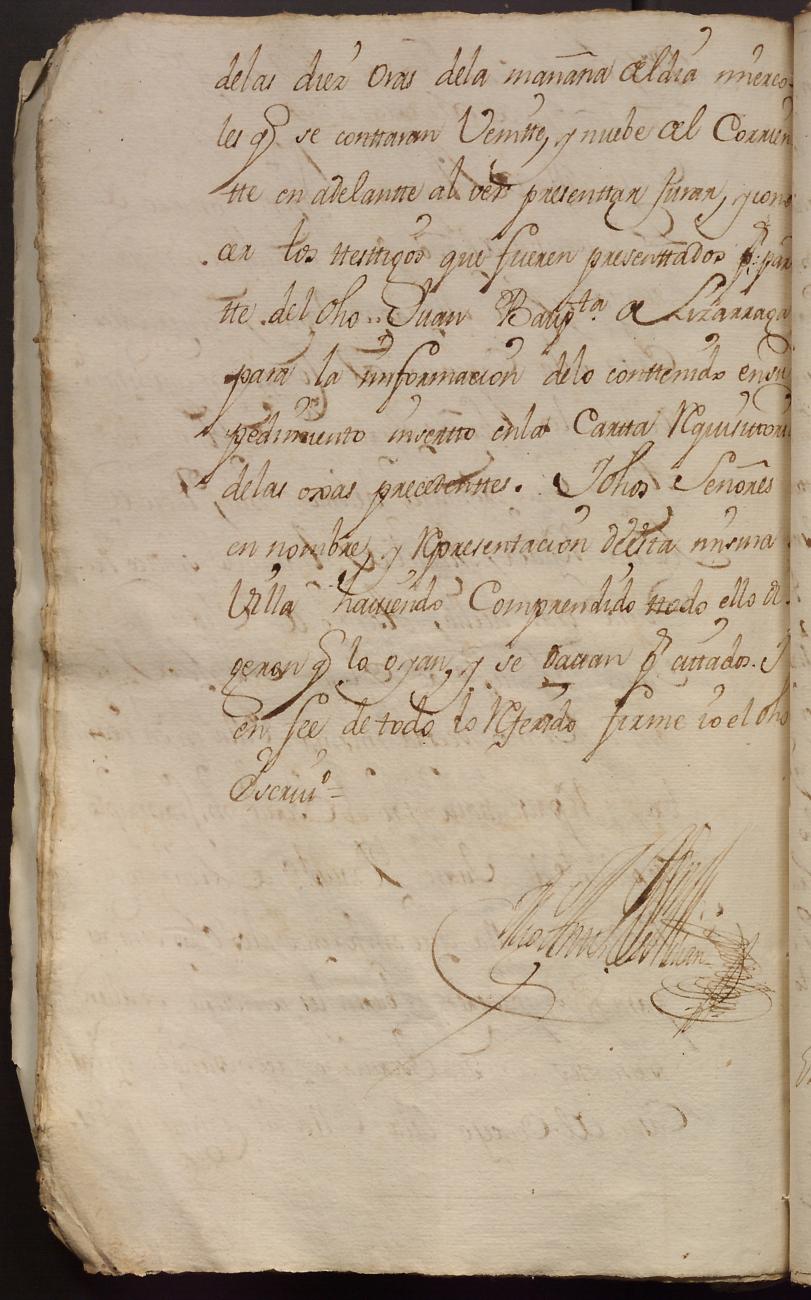 delas diez oras dela mañana del dia mierco
les q̃ se conttaran Veintte, y nuebe del Corrien
tte en adelantte al ver presenttar, jurar, y cono
cer los ttesttigos que fueren presenttados p.r par
tte del dho. Juan Baup.ta de Lizarraga
para la ynformacion delo conttenido ensu
pedimiento ynsertto enla Cartta Rquisitori
delas oxas precedenttes. I dhos Señores
en nombre, y Rpresentacion destta misma
Villa haviendo Comprendido ttodo ello di
geron q̃ lo oyan, y se davan p.r cittados. I
en fee de todo lo Rferido firme io el dho
Escriu.o =